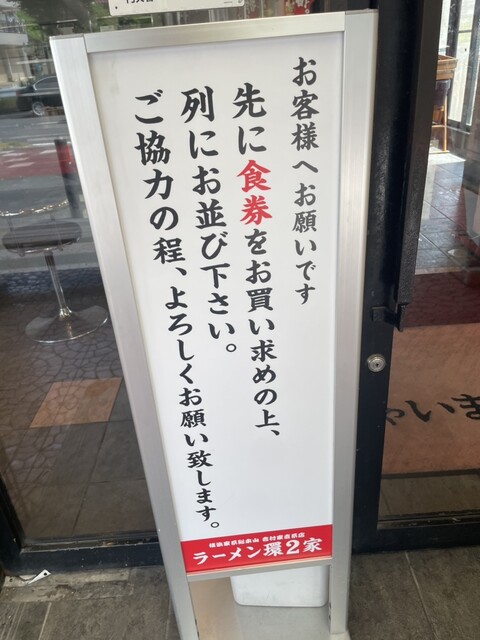 お客様へお願いです
先に食券をお買い求めの上、
列にお並び下さい。
ご協力の程、よろしくお願い致します。
横浜家系総本山 吉村家直系店
ラーメン環2家
ゃいま